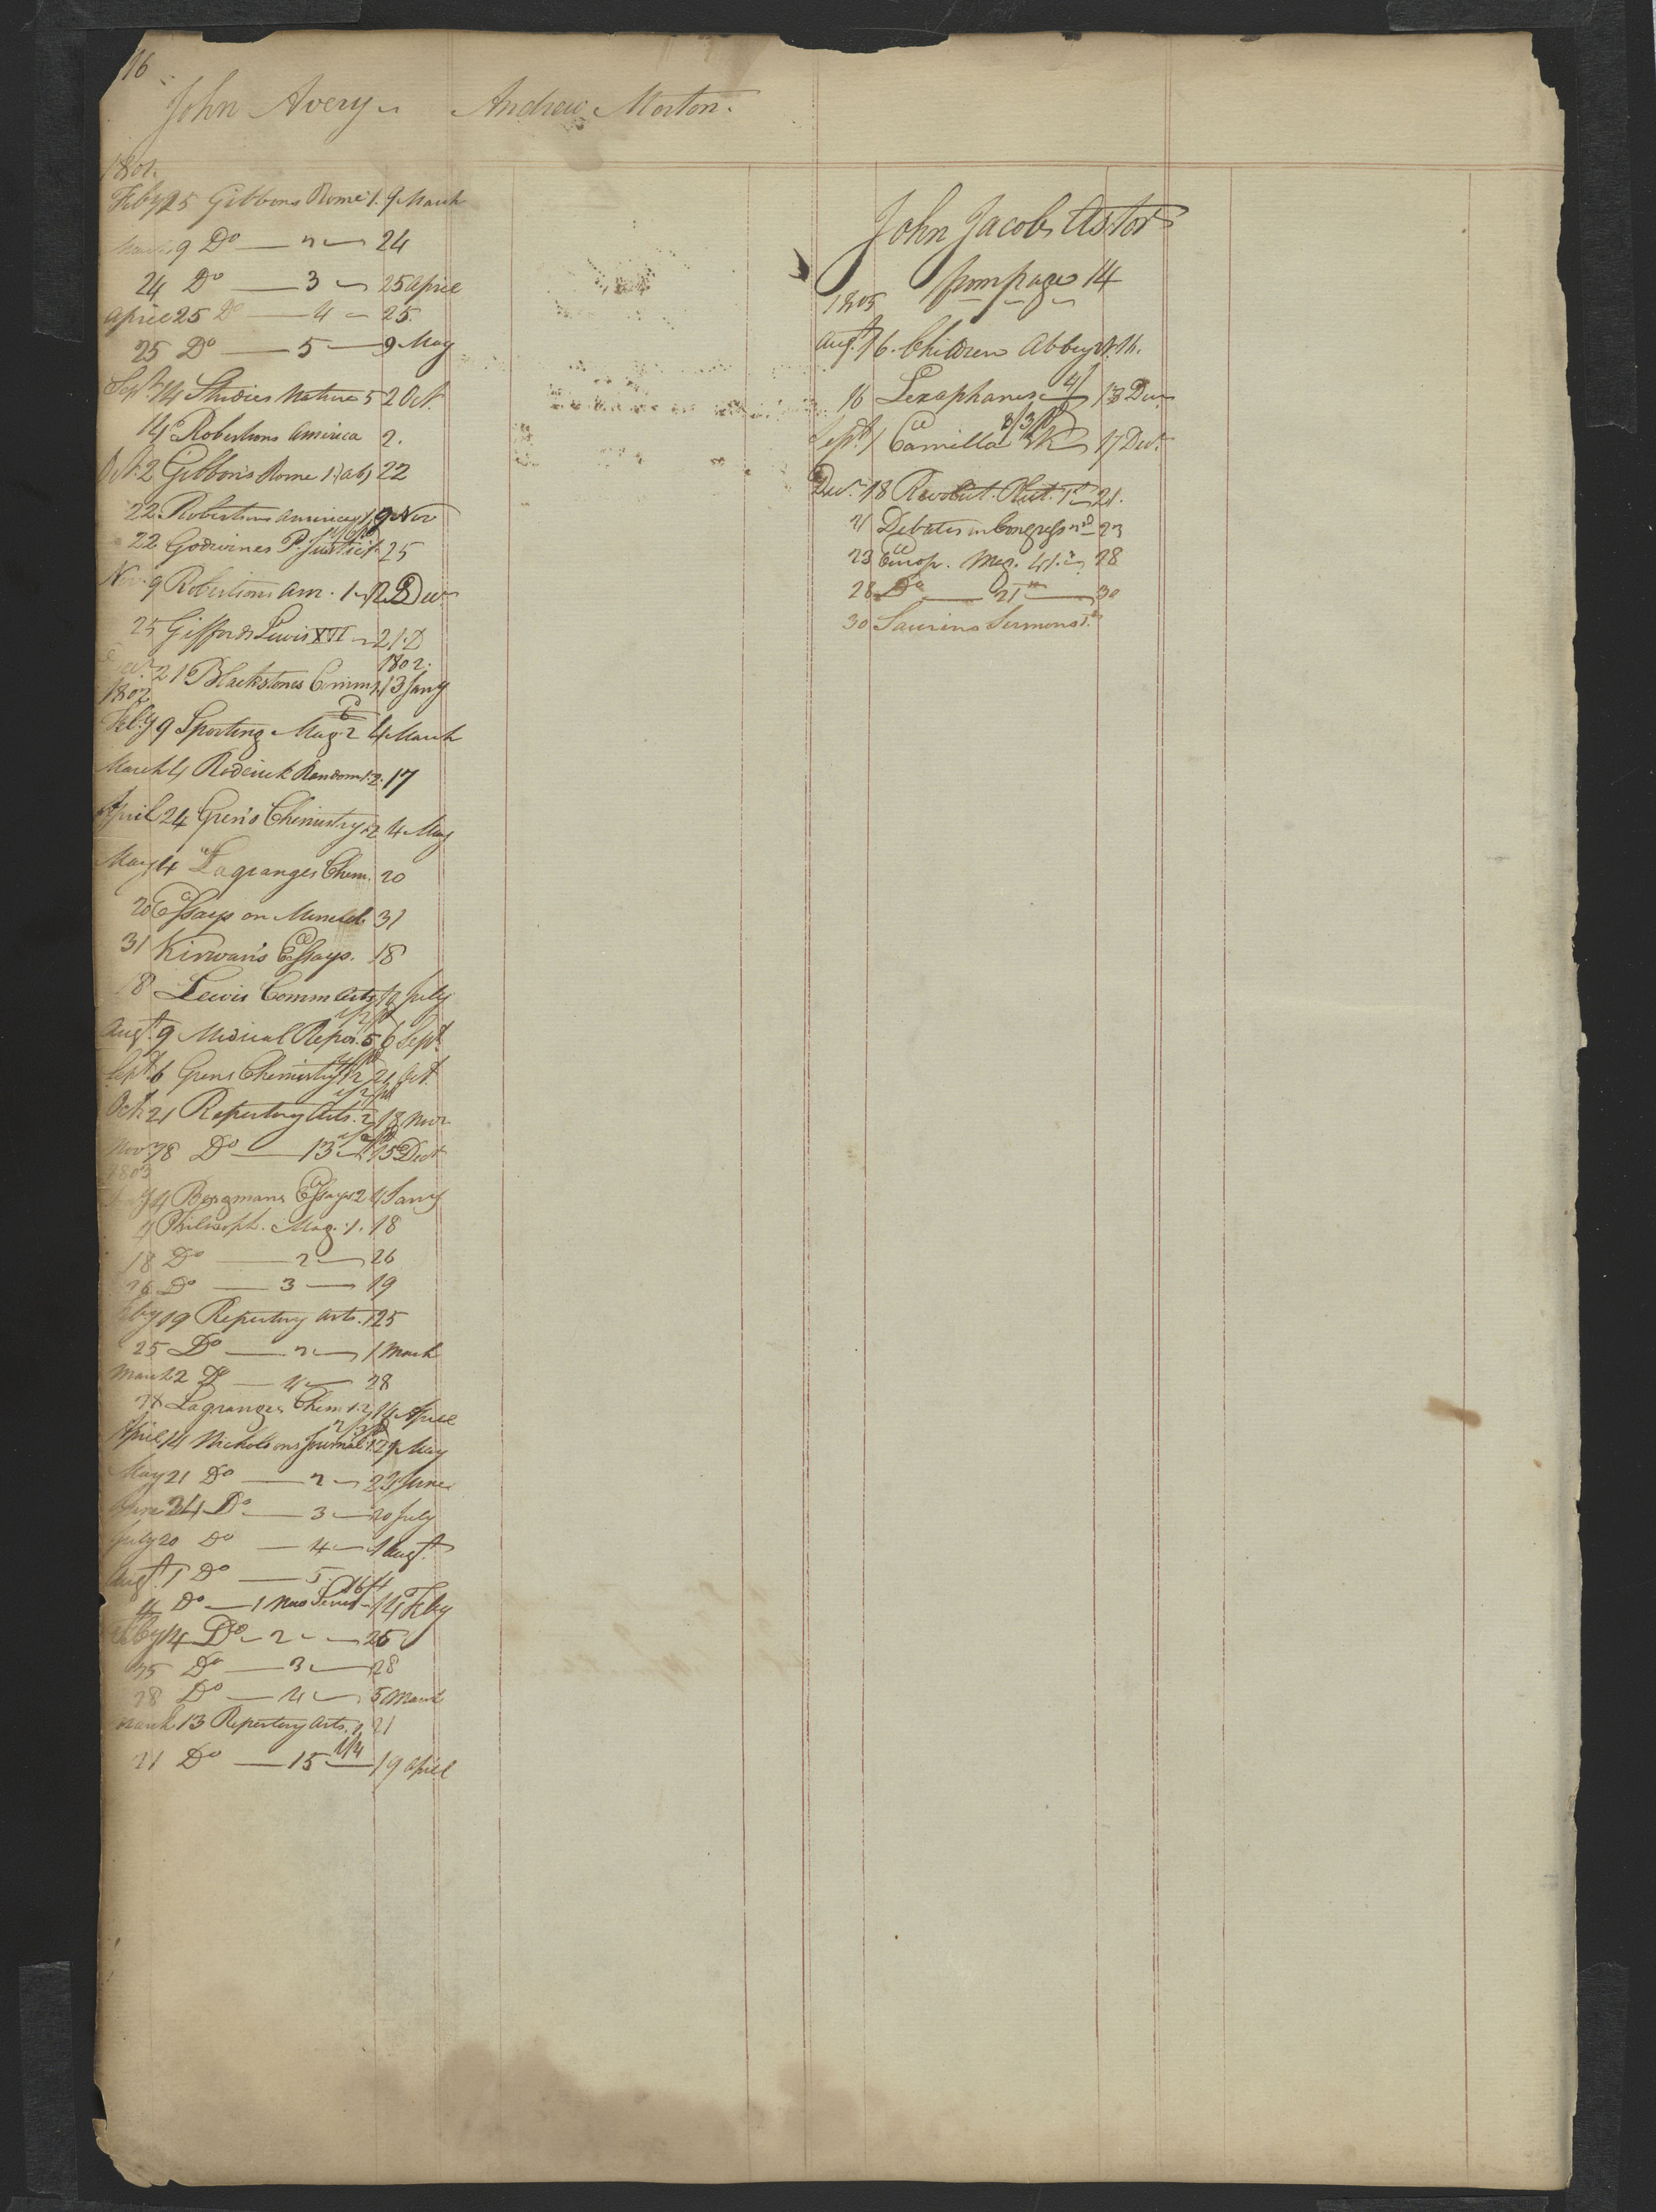 16
John Avery Andrew Morton.
1801.
Feby 25 Gibbons Rome 1. 9 March
March 9 Do — 2 — 24
24 Do — 3 — 25 April
April 25 Do — 4 — 25.
25 Do — 5 — 9 May
Sept. 14 Studies Nature 5 2 Oct.
14 Robertsons America 2.
Oct. 2 Gibbon's Rome 1. (ab) 22
22 Robertsons America 1, 9 Nov
22 Godwines P. Justice 25
Nov. 9 Robertsons Am. 1. 2 Decr
25 Giffords Lewis XVI — 21. D
1802.
Decr. 21 Blackstones Comm 1 13 Jany
1802.
Feb.y 9 Sporting Mag. 2 4 March
March 4 Roderick Random 1.2. 17
April 24 Gren's Chemistry 2 4 May
May 4 Lagranges Chem. 20
20 Essays on Mineral. 31
31 Kirwan's Essays. 18
18 Lewis Comm Arts 12 July
Augt. 9 Medical Repos. 5 6 Sept.
Sept. 6 Grens Chemistry 1.2 21 Oct.
Oct. 21 Repertory Arts. 2 18 Novr
Nov. 18 Do — 13 — 15 Decr
1803
Jany 4 Bergmans Essays 2 4 Jany
4 Philosoph. Mag. 1. 18
18 Do — 2 — 26
26 Do — 3 — 19
Feby 19 Repertory Arts. 1 25
25 Do — 2 — 1 March
March 2 Do — 4 — 28
28 Lagranges Chem 1.2 14 April
April 14 Nicholsons Journal. 1. 21 May
May 21 Do — 2 — 23 June
June 24 Do — 3 — 20 July
July 20 Do — 4 — 1 Augt.
Augt. 1 Do — 5.
4 Do — 1 New Series — 14 Feby
Feby 14 Do — 2 — 25
25 Do — 3 — 28
28 Do — 4 — 5 March
March 13 Repertory Arts. 21
21 Do — 15 — 19 April
John Jacob Astor
from page 14
1805
Augt. 16. Children Abbey 16.
16 Lexaphanes 4/ 13 Decr
Sept. 1 Camilla 17 Decr.
Decr. 18 Revolut. Plut. 1st 21.
21 Debates in Congress 2d 23
23 Europ. Mag. 41. 28
28 Do — 21st — 30
30 Saurins Sermons 1st